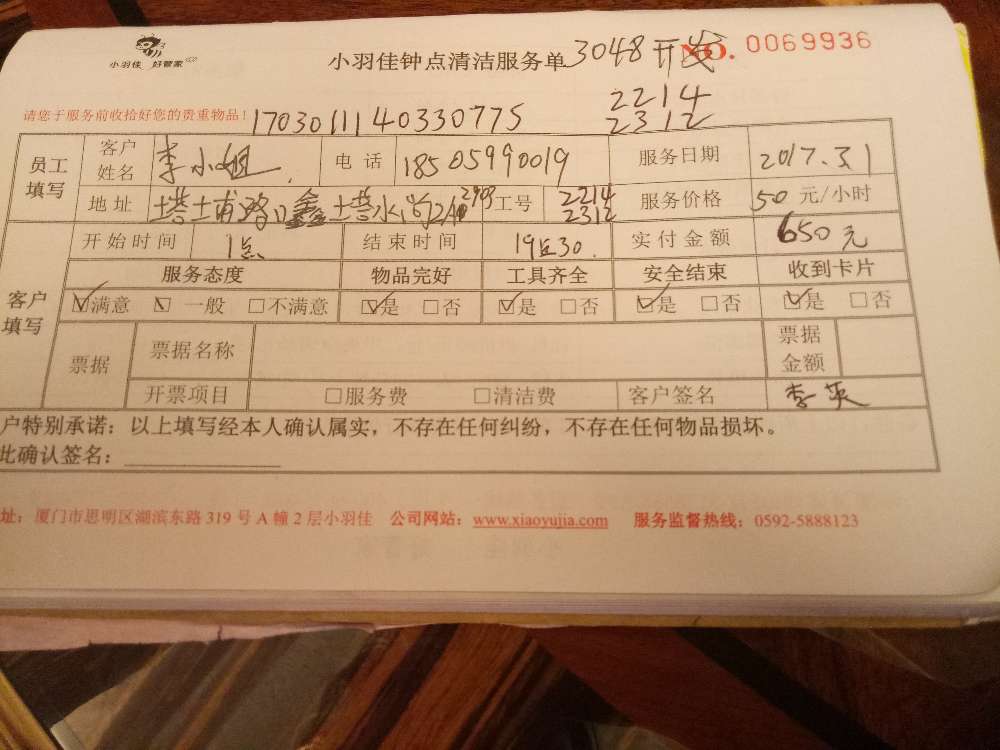 小羽佳 好管家
小羽佳钟点清洁服务单 3048开发 NO. 0069936
2214
2312
请您于服务前收拾好您的贵重物品！ 1703011140330775
员工填写 客户姓名 李小姐 电话 18505990019 服务日期 2017.3.1
地址 塔埔路口鑫塔水尚 工号 2214 2312 服务价格 50元/小时
开始时间 1点 结束时间 19点30 实付金额 650元
客户填写 服务态度 物品完好 工具齐全 安全结束 收到卡片
☑满意 ☑一般 □不满意 ☑是 □否 ☑是 □否 ☑是 □否 ☑是 □否
票据 票据名称 票据金额
开票项目 □服务费 □清洁费 客户签名 李英
户特别承诺：以上填写经本人确认属实，不存在任何纠纷，不存在任何物品损坏。
此确认签名：
址：厦门市思明区湖滨东路319号A幢2层小羽佳 公司网站：www.xiaoyujia.com 服务监督热线：0592-5888123